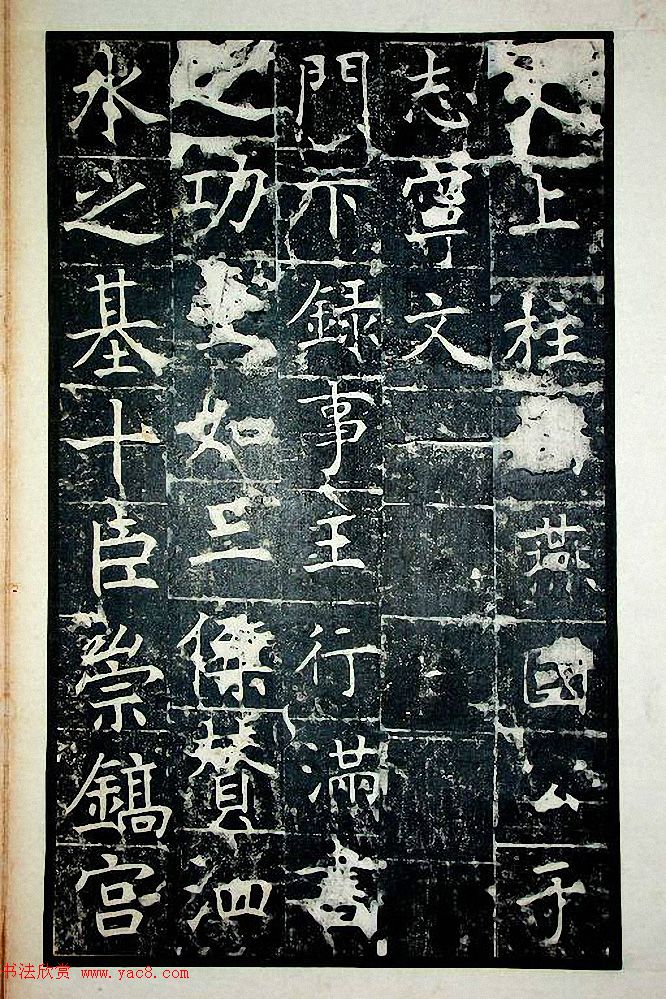 夫上柱國燕國公于
志寧文
門下録事王行滿書
之功如三傑賛泗
水之基十臣崇鎬宮
书法欣赏 www.yac8.com